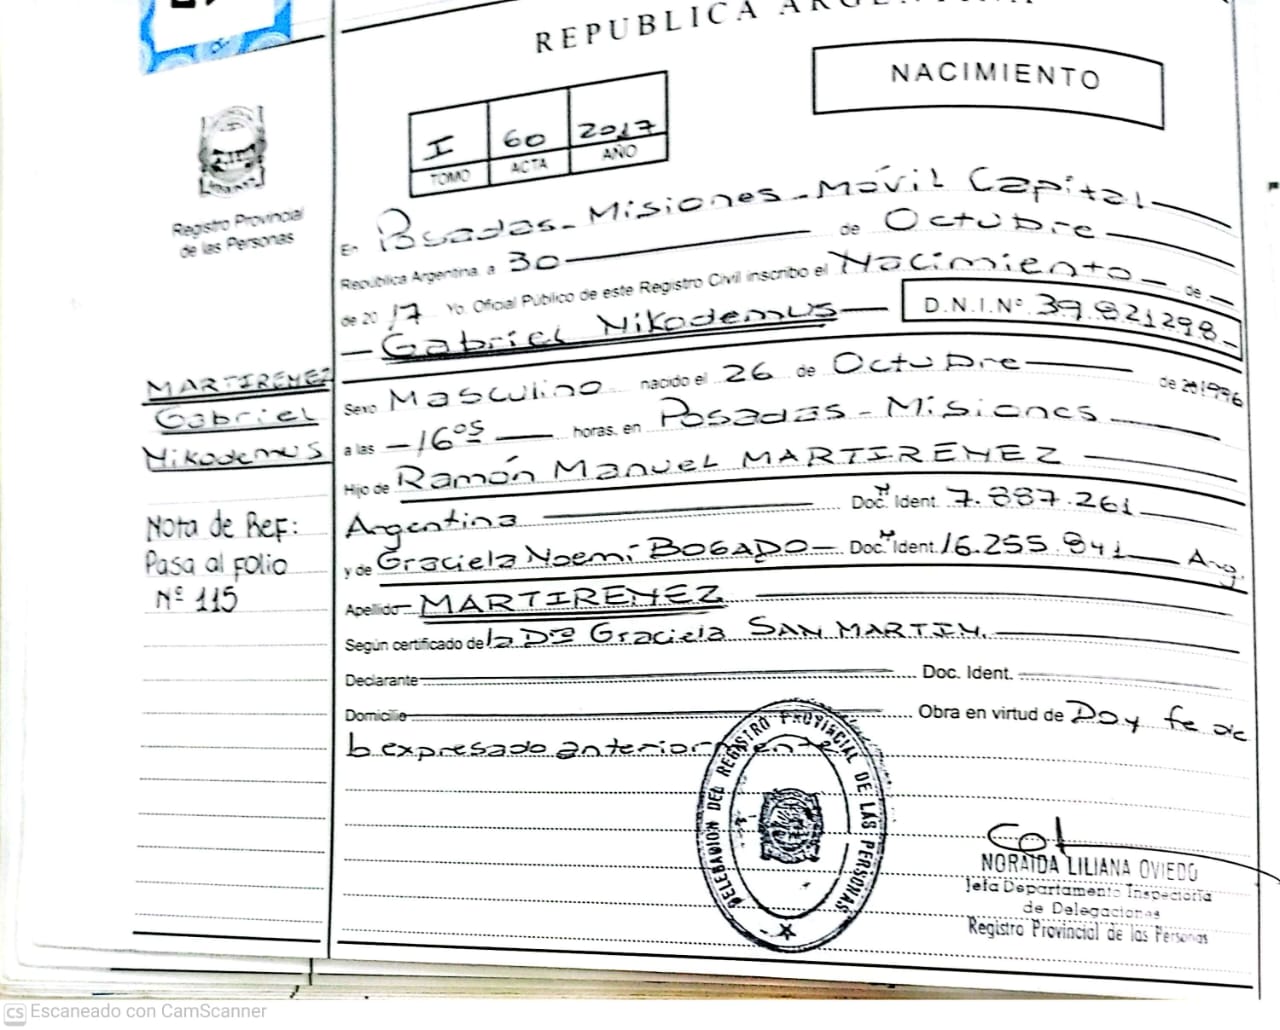 REPUBLICA ARGENTINA
NACIMIENTO
I 60 2017
TOMO ACTA AÑO
Registro Provincial
de las Personas
En Posadas - Misiones - Móvil Capital
República Argentina, a 30 de Octubre
de 2017 Yo. Oficial Público de este Registro Civil inscribo el Nacimiento de
Gabriel Nikodemus D.N.I.Nº 39.821298
MARTIRENEZ
Gabriel
Nikodemus
Sexo Masculino nacido el 26 de Octubre de 1996
a las -16⁰⁵ horas, en Posadas - Misiones
Hijo de Ramón Manuel MARTIRENEZ
Argentina Doc. Ident. 7.887.261
y de Graciela Noemí BOGADO - Doc. Ident. 16.255.841 Arg.
Apellido MARTIRENEZ
Según certificado de la Dra Graciela SAN MARTIN.
Declarante Doc. Ident.
Domicilio Obra en virtud de Doy fe de
lo expresado anteriormente
Nota de Ref:
Pasa al Folio
Nº 115
DELEGACION DEL REGISTRO PROVINCIAL DE LAS PERSONAS
NORAIDA LILIANA OVIEDO
Jefa Departamento Inspectoría
de Delegaciones
Registro Provincial de las Personas
CS Escaneado con CamScanner